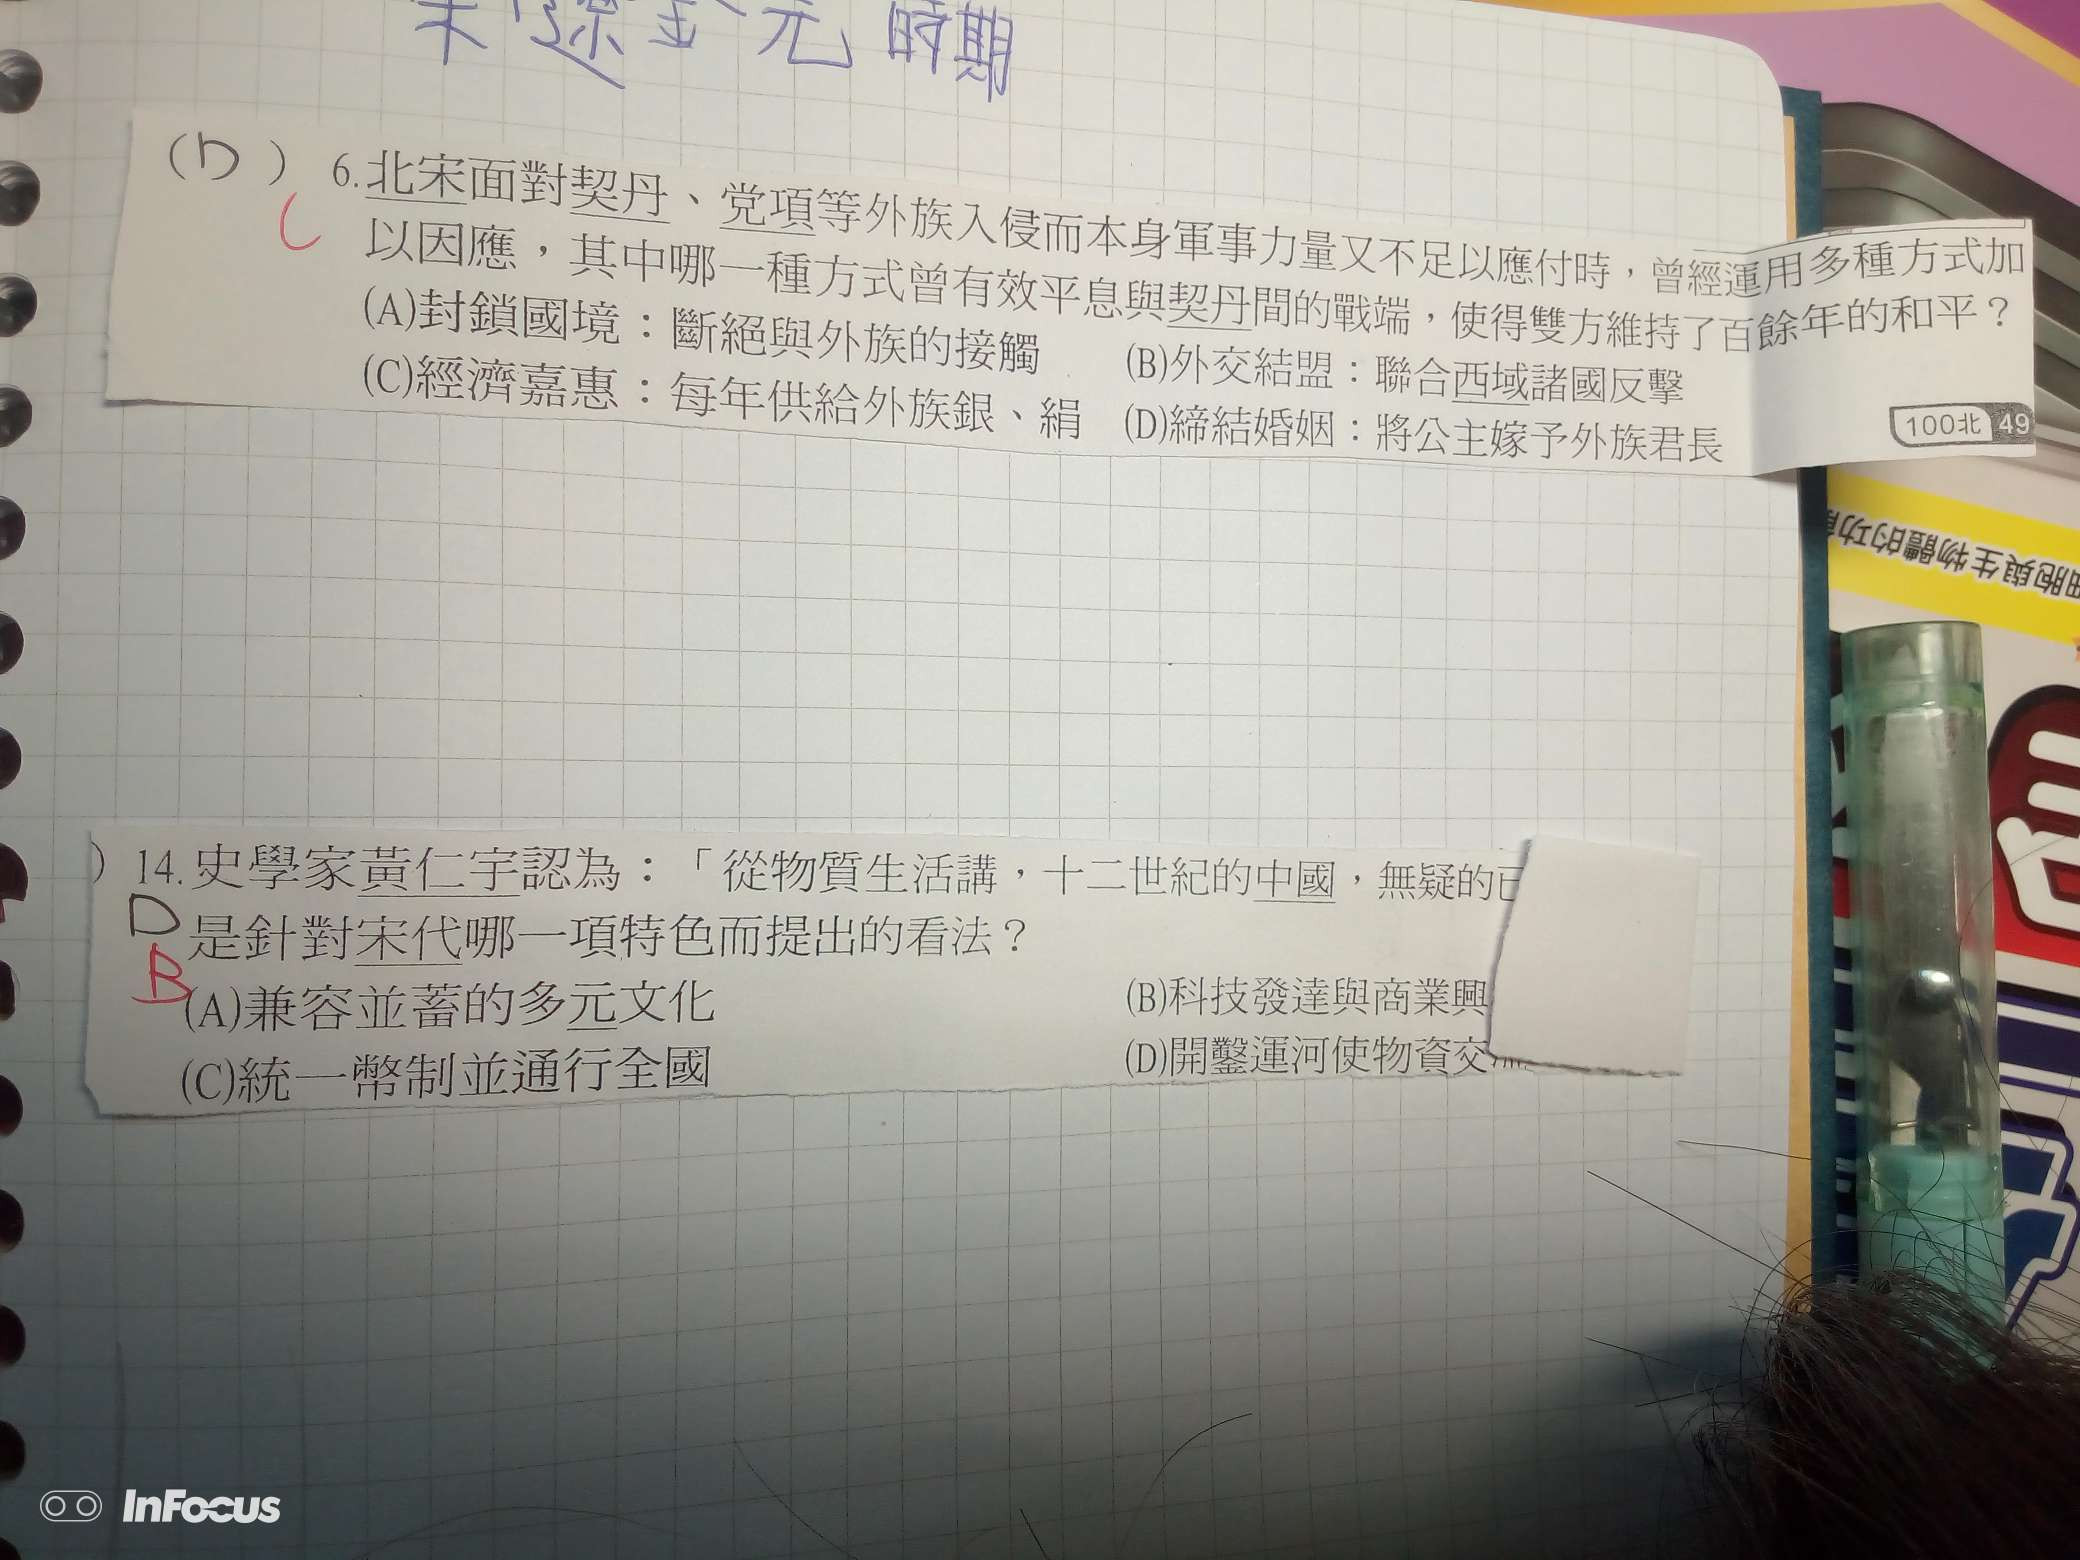 宋遼金元時期
(D) 6.北宋面對契丹、党項等外族入侵而本身軍事力量又不足以應付時，曾經運用多種方式加
C 以因應，其中哪一種方式曾有效平息與契丹間的戰端，使得雙方維持了百餘年的和平？
(A)封鎖國境：斷絕與外族的接觸 (B)外交結盟：聯合西域諸國反擊
(C)經濟嘉惠：每年供給外族銀、絹 (D)締結婚姻：將公主嫁予外族君長
100北 49
) 14.史學家黃仁宇認為：「從物質生活講，十二世紀的中國，無疑的已
D 是針對宋代哪一項特色而提出的看法？
B (A)兼容並蓄的多元文化 (B)科技發達與商業興
(C)統一幣制並通行全國 (D)開鑿運河使物資交
細胞與生物體的功
InFocus